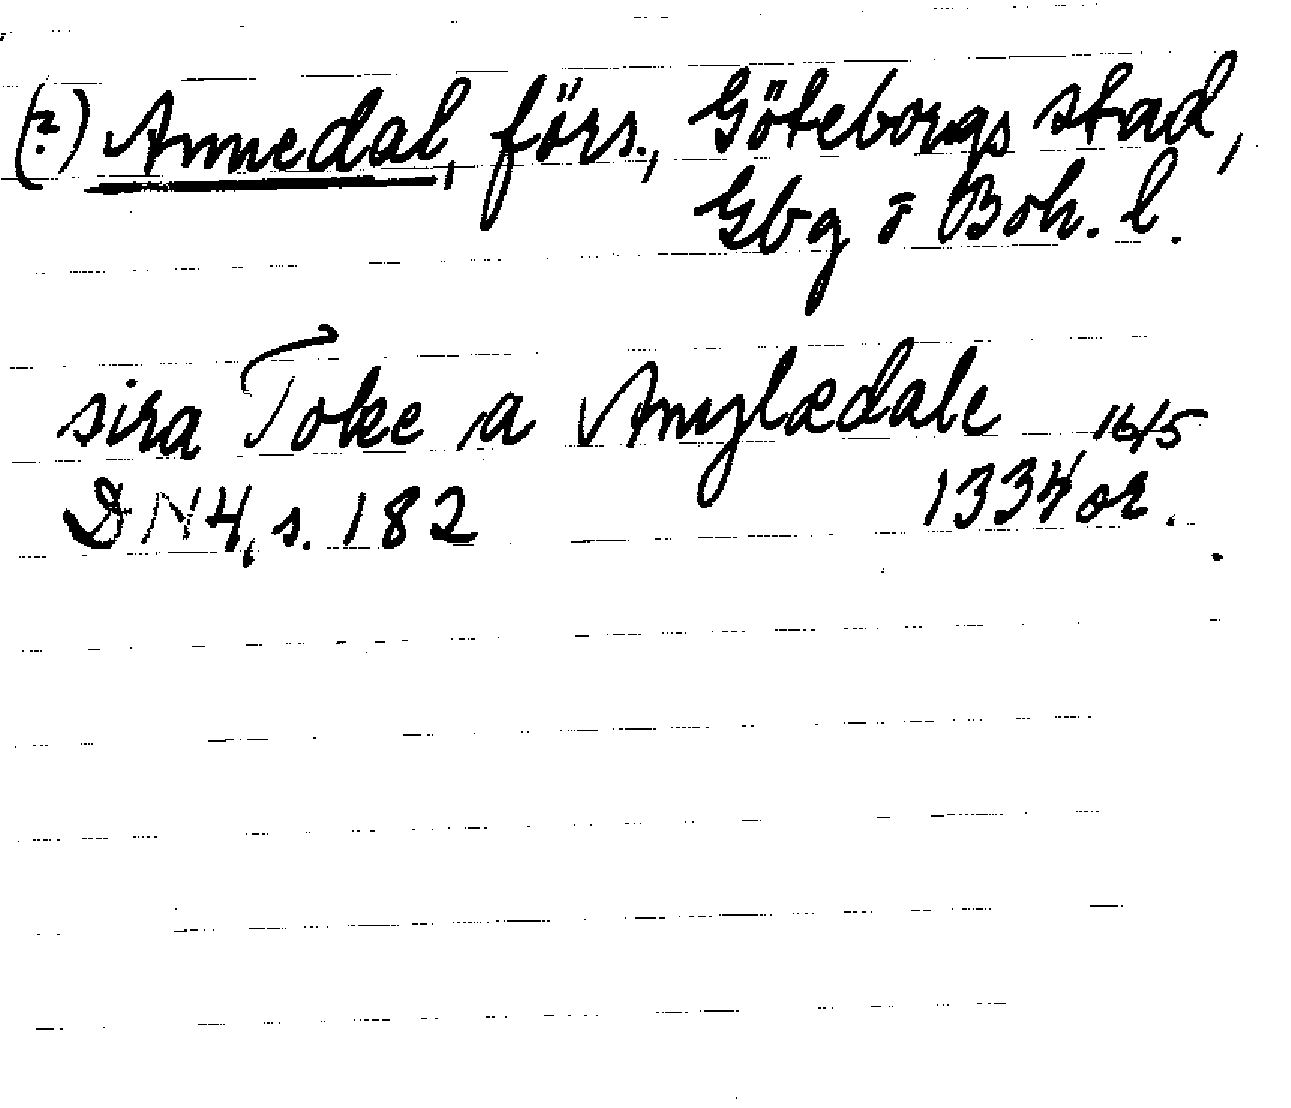 (?) Annedal, förs., Göteborgs stad,
Gbg o Boh. l.
sira Toke a Amylædale 16/5
DN 4, s. 182 1334 or.